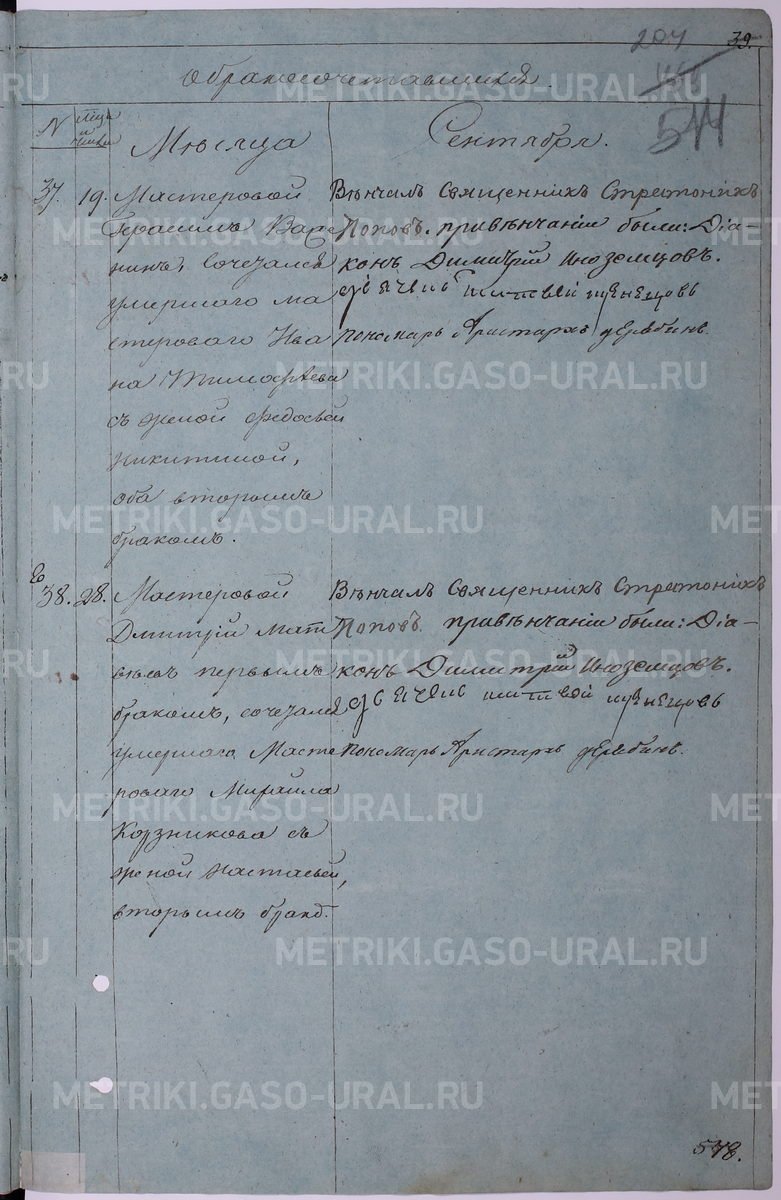 39.
204
544
о бракосочетавшихся.
№
мѣсяца
Сентября.
37. 19. Мастеровой
Герасимъ Варе
нинъ, сочетался
умершаго ма
стероваго Ива
на Тимофѣева
съ женой Федосьей
Никитиной,
оба вторымъ
бракомъ.
Вѣнчалъ Священникъ Стратоникъ
Поповъ. при вѣнчаніи были: Діа-
конъ Димитрій Иноземцовъ.
пономарь Аристархъ Дерябинъ.
38. 28. Мастеровой
Дмитрій Мат
вѣевъ первымъ
бракомъ, сочетался
умершаго Масте
роваго Михаила
Корзникова съ
женой Настасьей,
вторымъ бракъ.
Вѣнчалъ Священникъ Стратоникъ
Поповъ. при вѣнчаніи были: Діа-
конъ Димитрій Иноземцовъ.
пономарь Аристархъ Дерябинъ.
578.
METRIKI.GASO-URAL.RU